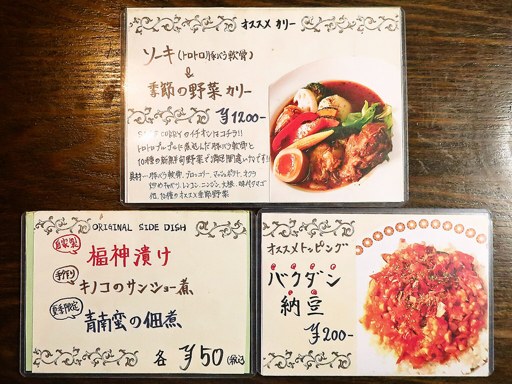 オススメ カリー
ソーキ(トロトロ豚バラ軟骨)
&
季節の野菜カリー
¥1200-
CURRYのイチオシはコチラ!!
トロトロプルプルに煮込んだ豚バラ軟骨と
10種の新鮮旬野菜で満足間違いなです!!
具材…豚バラ軟骨、ブロッコリー、マッシュポテト、オクラ
キャベツ、レンコン、ニンジン、大根、味付タマゴ
他、10種のオススメ季節野菜
ORIGINAL SIDE DISH
自家製
福神漬け
手作り
キノコのサンショー煮
夏季限定
青南蛮の佃煮
各 ¥50(税込)
オススメトッピング
バクダン
納豆
¥200-